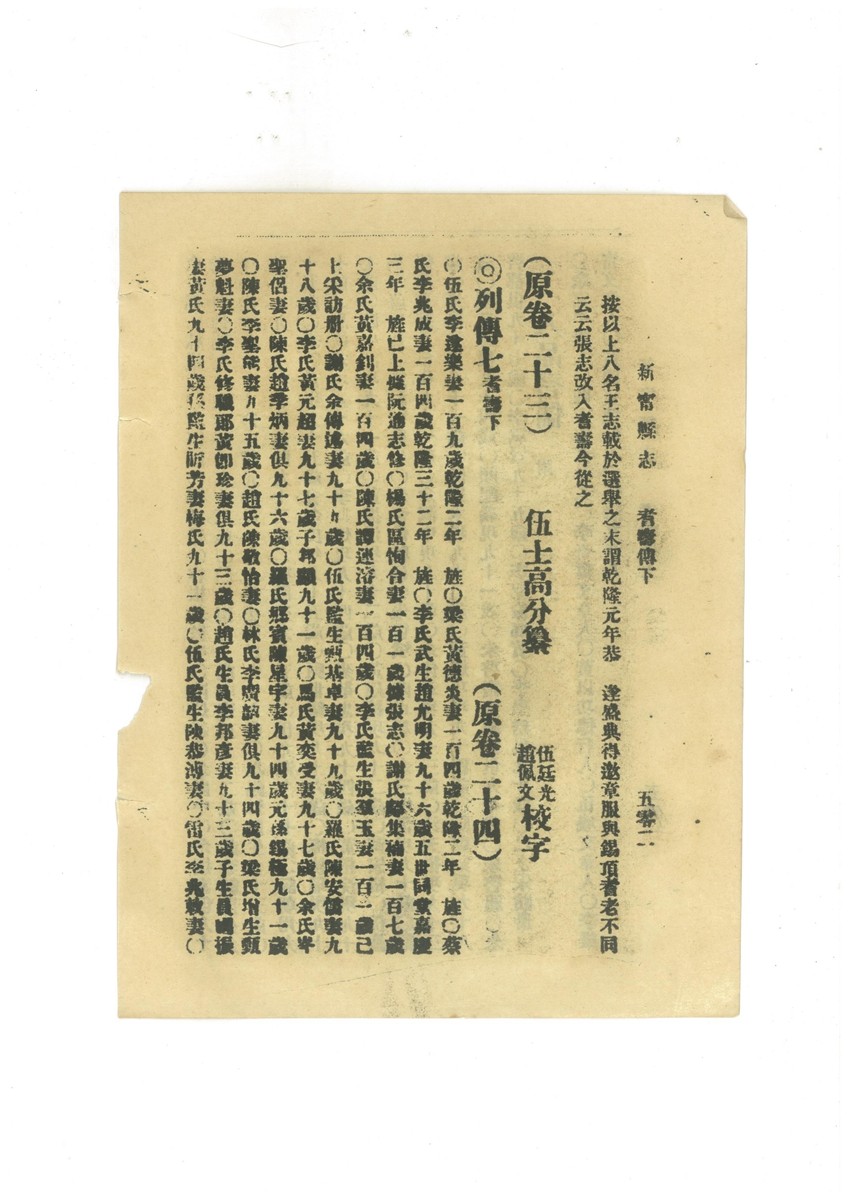 新甯縣志　耆壽傳下　五零二
按以上八名王志載於選舉之末謂乾隆元年恭　逢盛典得邀章服與錫頂耆老不同
云云張志改入耆壽今從之
（原卷二十三）　伍士高分纂　伍廷光趙佩文校字
◎列傳七耆壽下　（原卷二十四）
○伍氏李逢樂妻一百九歲乾隆二年　旌○梁氏黃德炎妻一百四歲乾隆二年　旌○蔡
氏李兆成妻一百四歲乾隆三十二年　旌○李氏武生趙允明妻九十六歲五世同堂嘉慶
三年　旌已上據阮通志修○楊氏區恂合妻一百一歲據張志○謝氏鄺集補妻一百七歲
○余氏黃嘉釗妻一百四歲○陳氏譚連濬妻一百四歲○李氏監生張玉妻一百一歲已
上采訪册○謝氏余傳妻九十九歲○伍氏監生甄基卓妻九十九歲○羅氏陳安儒妻九
十八歲○李氏黃元超妻九十七歲子邦九十一歲○馬氏黃奕受妻九十七歲○余氏
聖侶妻○陳氏趙季炳妻俱九十六歲○羅氏鄉賓陳星宇妻九十四歲元孫錫極九十一歲
○陳氏李聖能妻九十五歲○趙氏陳敬怡妻○林氏李廣妻俱九十四歲○梁氏增生甄
夢魁妻○李氏修職郎黃卽珍妻俱九十三歲○趙氏生員李邦彥妻九十三歲子生員振
妻黃氏九十四歲孫監生昕芳妻梅氏九十一歲○伍氏監生陳恭溥妻○雷氏李兆敏妻○